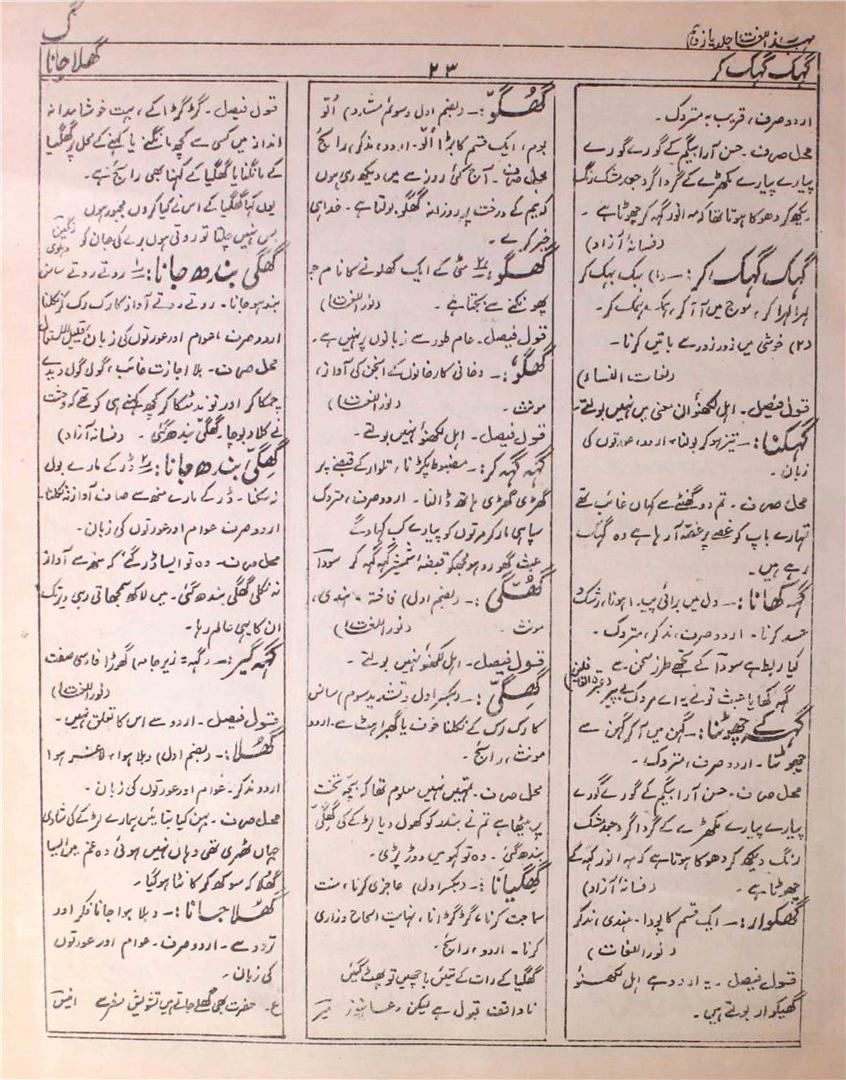 مہذب اللغات جلد یازدہم
گ
گہک گہک کر
۲۳
گھلا جانا
اردو صرف، قریب بہ متروک۔
محل صرف۔ حسن آرا بیگم کے گورے گورے
پیارے پیارے مکھڑے کے گردا گرد جعد مشک رنگ
دیکھ کر دھوکا ہوتا تھا کہ مہ انور گہہ کر چھوٹا ہے۔
(فسانۂ آزاد)
گہک گہک کر :۔ (۱) بہک بہک کر
لہرا لہرا کر، موج میں آ آ کر، چہک چہک کر۔
(۲) خوشی میں زور زور سے باتیں کرنا۔
(لغات النساء)
قول فیصل۔ اہل لکھنؤ ان معنی میں نہیں بولتے۔
گہکنا :۔ تیز ہو کر بولنا۔ اردو، عورتوں کی
زبان۔
محل صرف۔ تم دو گھنٹے سے کہاں غائب تھے
تمہارے باپ کو غصے پر غصہ آ رہا ہے وہ گہک
رہے ہیں۔
گہہ کھانا :۔ دل میں برائی پیدا ہونا، رشک
حسد کرنا۔ اردو صرف، مذکر، متروک۔
کیا ربط ہے سودا کے تجھے طرز سخن سے
گہہ کھایا عبث تونے یہ اے مردک بے پیر
گہہ کے چھوٹنا :۔ گہن میں آ کر گہن سے
چھوٹنا۔ اردو صرف، متروک۔
محل صرف۔ حسن آرا بیگم کے گورے گورے
پیارے پیارے مکھڑے کے گردا گرد جعد مشک
رنگ دیکھ کر دھوکا ہوتا ہے کہ مہ انور گہہ کے
چھوٹا ہے۔ (فسانۂ آزاد)
گھکوار :۔ ایک قسم کا پودا۔ ہندی، مذکر
(نور اللغات)
قول فیصل۔ یہ اردو ہے اہل لکھنؤ
گھیکوار بولتے ہیں۔
گھُگّو :۔ (بضم اول و سوئم مشدد) اُلّو
بوم، ایک قسم کا بڑا اُلّو۔ اردو، مذکر، رائج
محل صرف۔ آج کئی روز سے میں دیکھ رہی ہوں
کہ نیم کے درخت پر روزانہ گھگو بولتا ہے۔ خدا ہی
خیر کرے۔
گھگو :۔ ۲؎ مٹی کے ایک کھلونے کا نام جو
پھونکنے سے بجتا ہے۔ (نور اللغات)
قول فیصل۔ عام طور سے زبانوں پر نہیں ہے۔
گھگو :۔ دخانی کارخانوں کے انجن کی آواز،
مونث۔ (نور اللغات)
قول فیصل۔ اہل لکھنؤ نہیں بولتے۔
گہہ گہہ کر :۔ مضبوط پکڑنا، تلوار کے قبضے پر
گھڑی گھڑی ہاتھ ڈالنا۔ اردو صرف، متروک
سپاہی مار کر مرتوں کو پیارے کب کہا دے گا
عبث گھورو ہو مجھکو قبضۂ شمشیر گہہ گہہ کر سودا
گھُگی :۔ (بضم اول) فاختہ۔ ہندی،
مونث۔ (نور اللغات)
قول فیصل۔ اہل لکھنؤ نہیں بولتے۔
گھگّی :۔ (بکسر اول و تشدید سوم) سانس
کا رک رک کے نکلنا خوف یا گھبراہٹ سے۔ اردو
مونث، رائج۔
محل صرف۔ تمہیں نہیں معلوم تھا کہ بچہ تخت
پر بیٹھا ہے تم نے بندر کو کھول دیا لڑکے کی گھگّی
بندھ گئی۔ وہ تو کہو میں دوڑ پڑی۔
گھگیانا :۔ (بکسر اول) عاجزی کرنا، منت
سماجت کرنا، گڑگڑانا، نہایت الحاح و زاری
کرنا۔ اردو، رائج۔
گھگیا کے رات کے تیئں باچھیں تو پھٹ گئیں
ناواقف قبول ہے لیکن دعا ہنوز میر
قول فیصل۔ گڑگڑا کے، بہت خوشامدانہ
انداز میں کسی سے کچھ مانگنے یا کہنے کے محل پر گھگیا
کے مانگنا یا گھگیا کے کہنا بھی رائج ہے۔
یوں کہا گھگیا کے اس نے کیا کروں مجبور ہوں
بس نہیں چلتا تو روتی ہوں پرے کی جان کو رنگین دہلوی
گھگی بندھ جانا :۔ ۱؎ روتے روتے سانس
بند ہو جانا۔ روتے روتے آواز کا رک رک کر نکلنا
اردو صرف، عوام اور عورتوں کی زبان، قلیل الاستعمال
محل صرف۔ بلا اجازت غائب، گول گول دیدے
چمکا کر اور توند مٹکا کر کچھ کہنے ہی کو تھے کہ وحشت
نے گلا دبوچا، گھگّی بندھ گئی۔ (فسانۂ آزاد)
گھگّی بندھ جانا :۔ ۲؎ ڈر کے مارے بول
نہ سکنا۔ ڈر کے مارے منھ سے صاف آواز نہ نکلنا۔
اردو صرف عوام اور عورتوں کی زبان۔
محل صرف۔ وہ تو ایسا ڈر گئے کہ منھ سے آواز
نہ نکلی گھگی بندھ گئی۔ میں لاکھ سمجھاتی رہی دیر تک
ان کا یہی عالم رہا۔
گہہ گیر :۔ (گہہ = زیر جامہ) گھوڑا فارسی صفت
(نور اللغات)
قول فیصل۔ اردو سے اس کا تعلق نہیں۔
گھُلا :۔ (بضم اول) دبلا ہوا، لاغر ہوا
اردو مذکر۔ عوام اور عورتوں کی زبان۔
محل صرف۔ بہن کیا بتائیں ہمارے لڑکے کی شادی
جہاں ٹھہری تھی وہاں نہیں ہوئی وہ غم میں ایسا
گھلا کہ سوکھ کر کانٹا ہو گیا۔
گھُلا جانا :۔ دبلا ہوا جانا فکر اور
تردد سے۔ اردو صرف۔ عوام اور عورتوں
کی زبان۔
ع۔ حضرت بھی گھلے جاتے ہیں تشویش سفر سے انیس